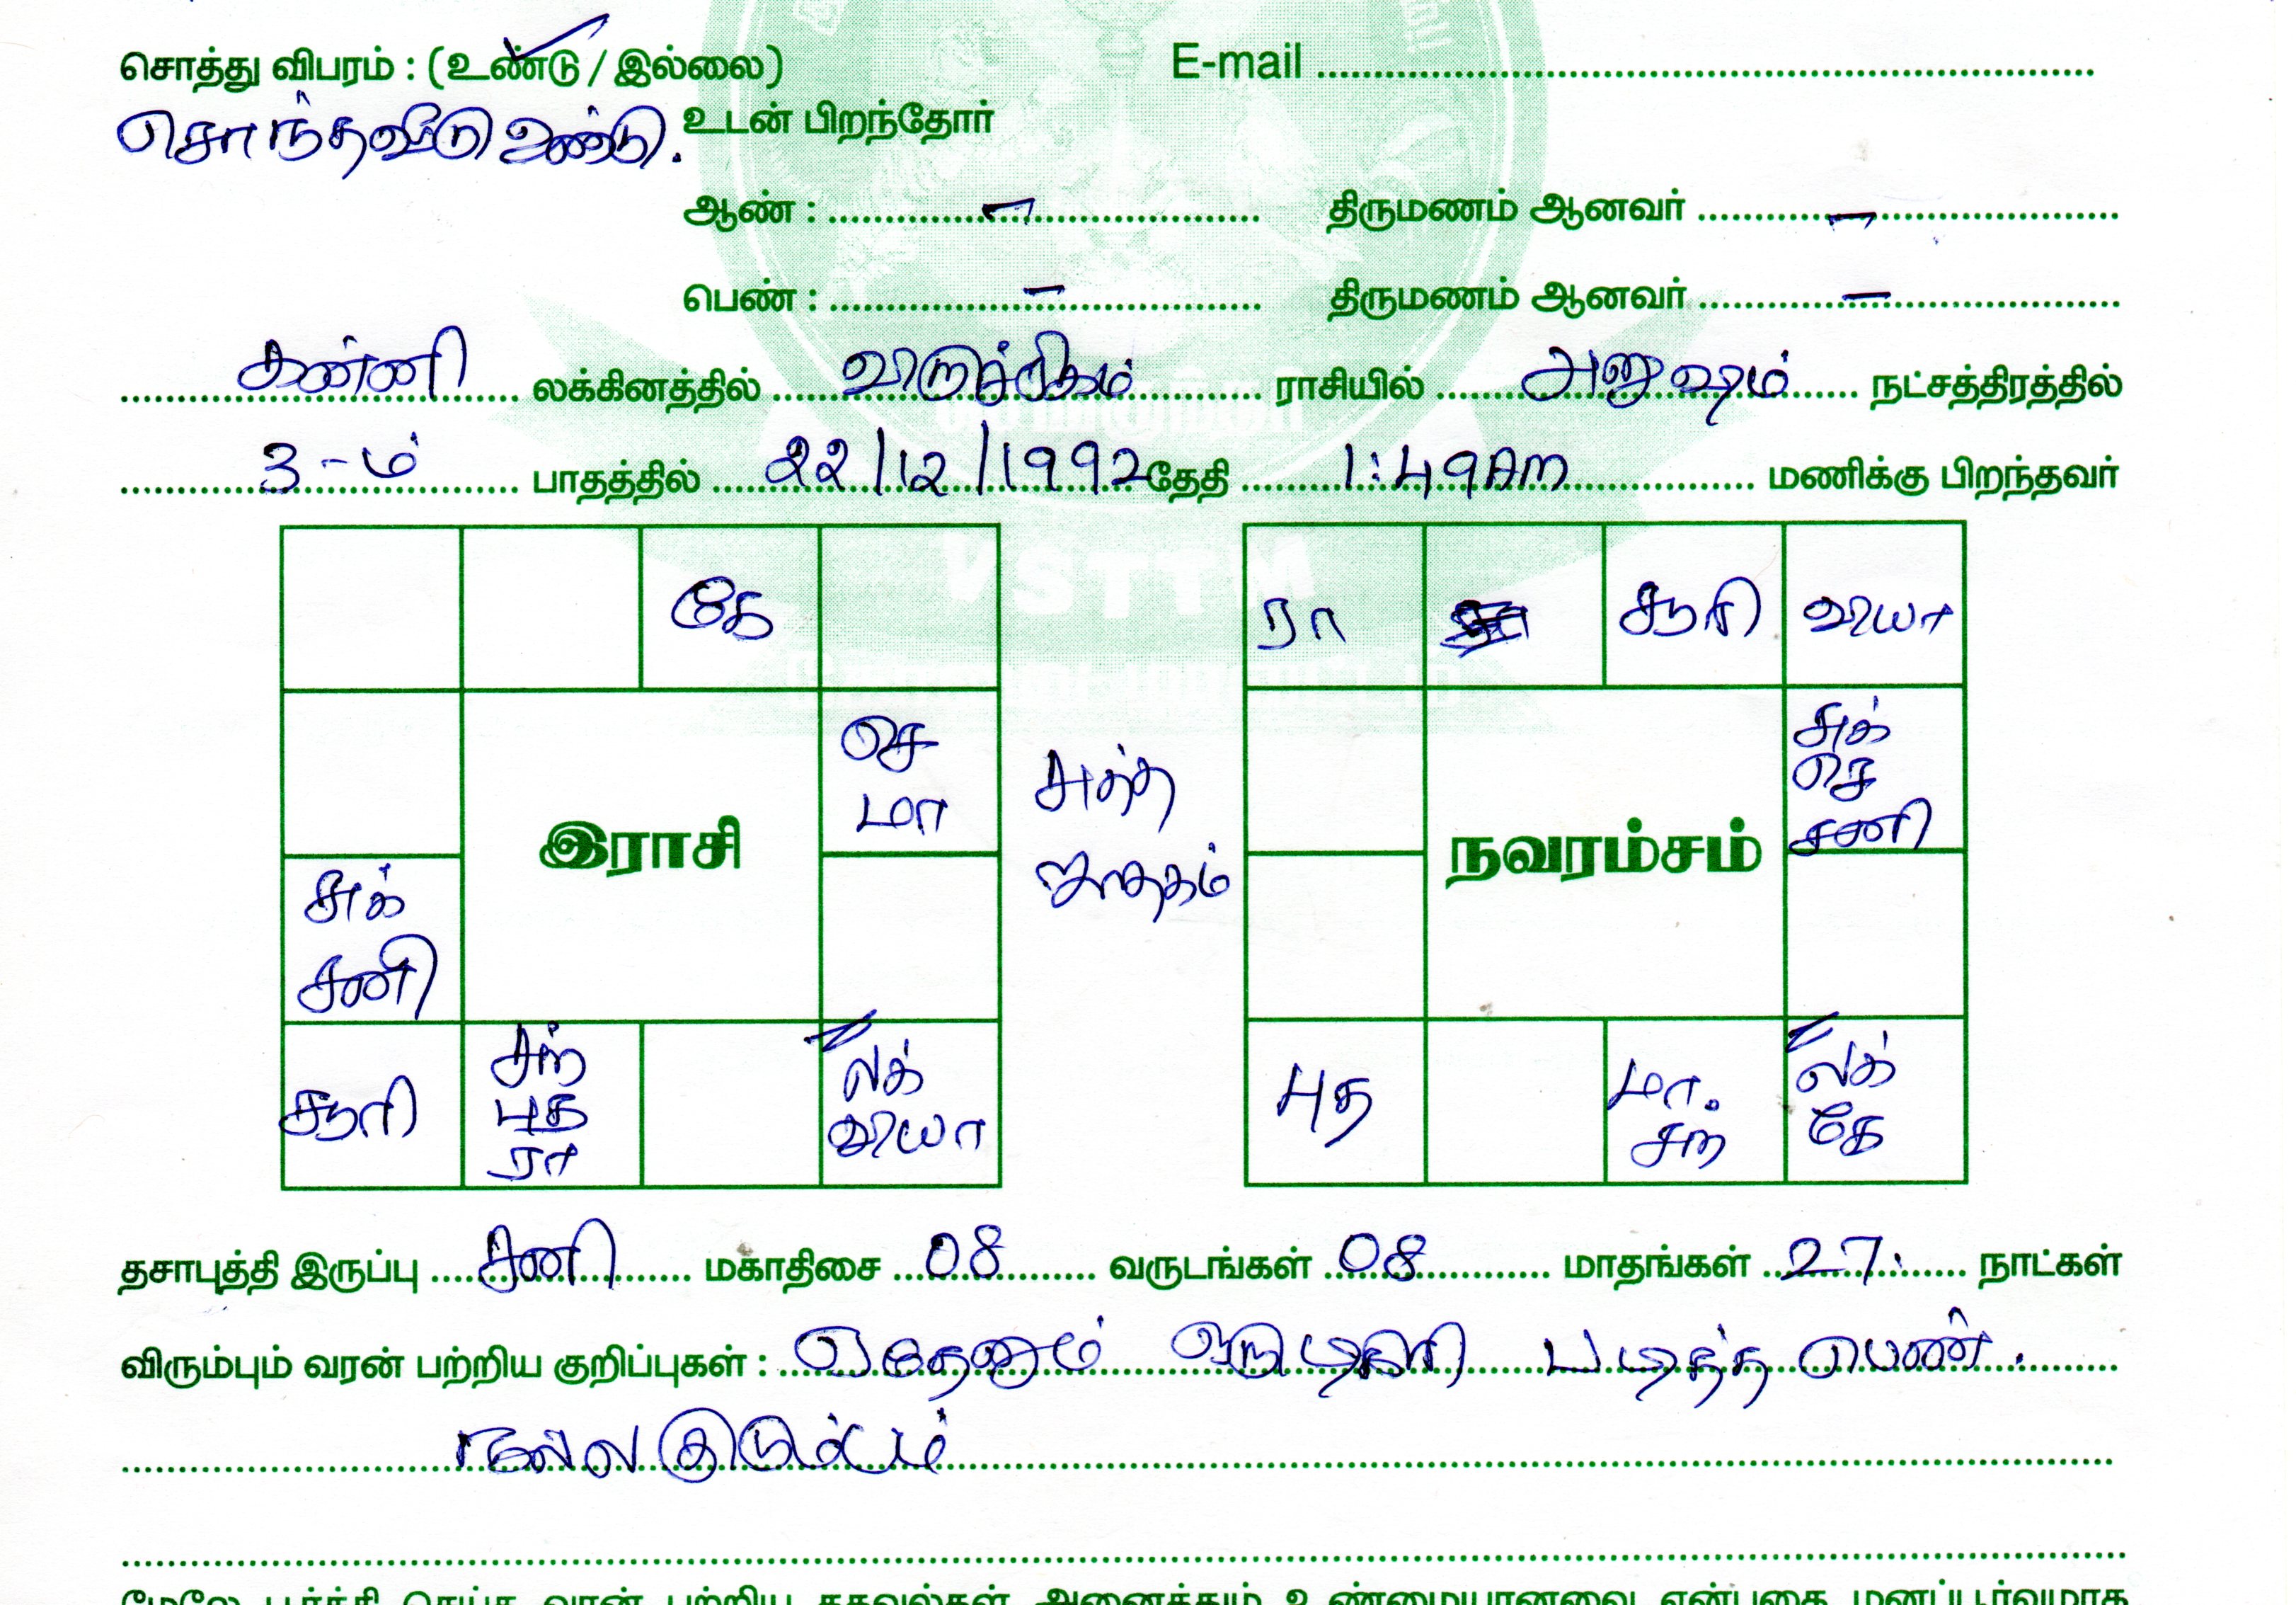 சொத்து விபரம் : (உண்டு / இல்லை) E-mail
சொந்தவீடு உண்டு. உடன் பிறந்தோர்
ஆண் : – திருமணம் ஆனவர் –
பெண் : – திருமணம் ஆனவர் –
கன்னி லக்கினத்தில் விருச்சிகம் ராசியில் அனுஷம் நட்சத்திரத்தில்
3-ம் பாதத்தில் 22/12/1992 தேதி 1:49 AM மணிக்கு பிறந்தவர்
கே
ரா சூரி வியா
செ
மா
சுத்த
ஜாதகம்
சுக்
செ
சனி
இராசி
நவரம்சம்
சுக்
சனி
சூரி
சந்
புத
ரா
லக்
வியா
புத
மா.
சந்
லக்
கே
தசாபுத்தி இருப்பு சனி மகாதிசை 08 வருடங்கள் 08 மாதங்கள் 27 நாட்கள்
விரும்பும் வரன் பற்றிய குறிப்புகள் : ஏதேனும் ஒரு டிகிரி படித்த பெண்.
நல்ல குடும்பம்
மேலே பூர்த்தி செய்த வரன் பற்றிய தகவல்கள் அனைத்தும் உண்மையானவை என்பதை மனப்பூர்வமாக
VSTTM